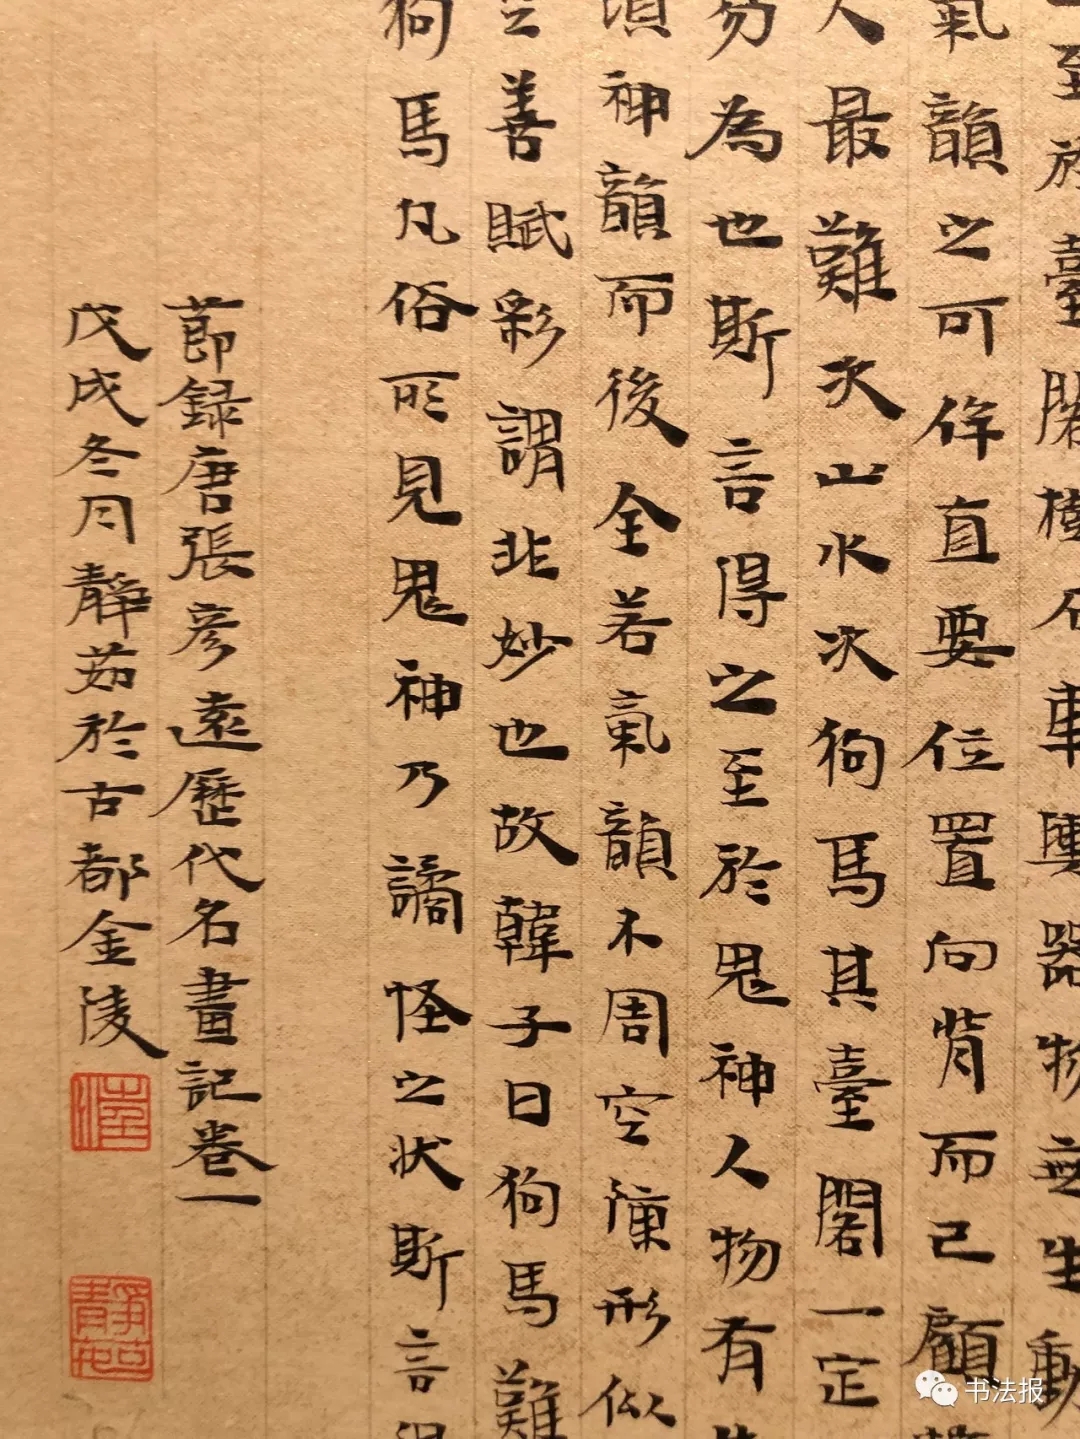 至於臺閣樹石車輿器物無生動
氣韻之可侔直要位置向背而已顧
人最難次山水次狗馬其臺閣一定
為也斯言得之至於鬼神人物有
須神韻而後全若氣韻不周空陳形似
之善賦彩謂非妙也故韓子曰狗馬難
狗馬凡俗所見鬼神乃譎怪之狀斯言得
節録唐張彦遠歷代名畫記卷一
戊戌冬月靜茹於古都金陵
靜茹
书法报